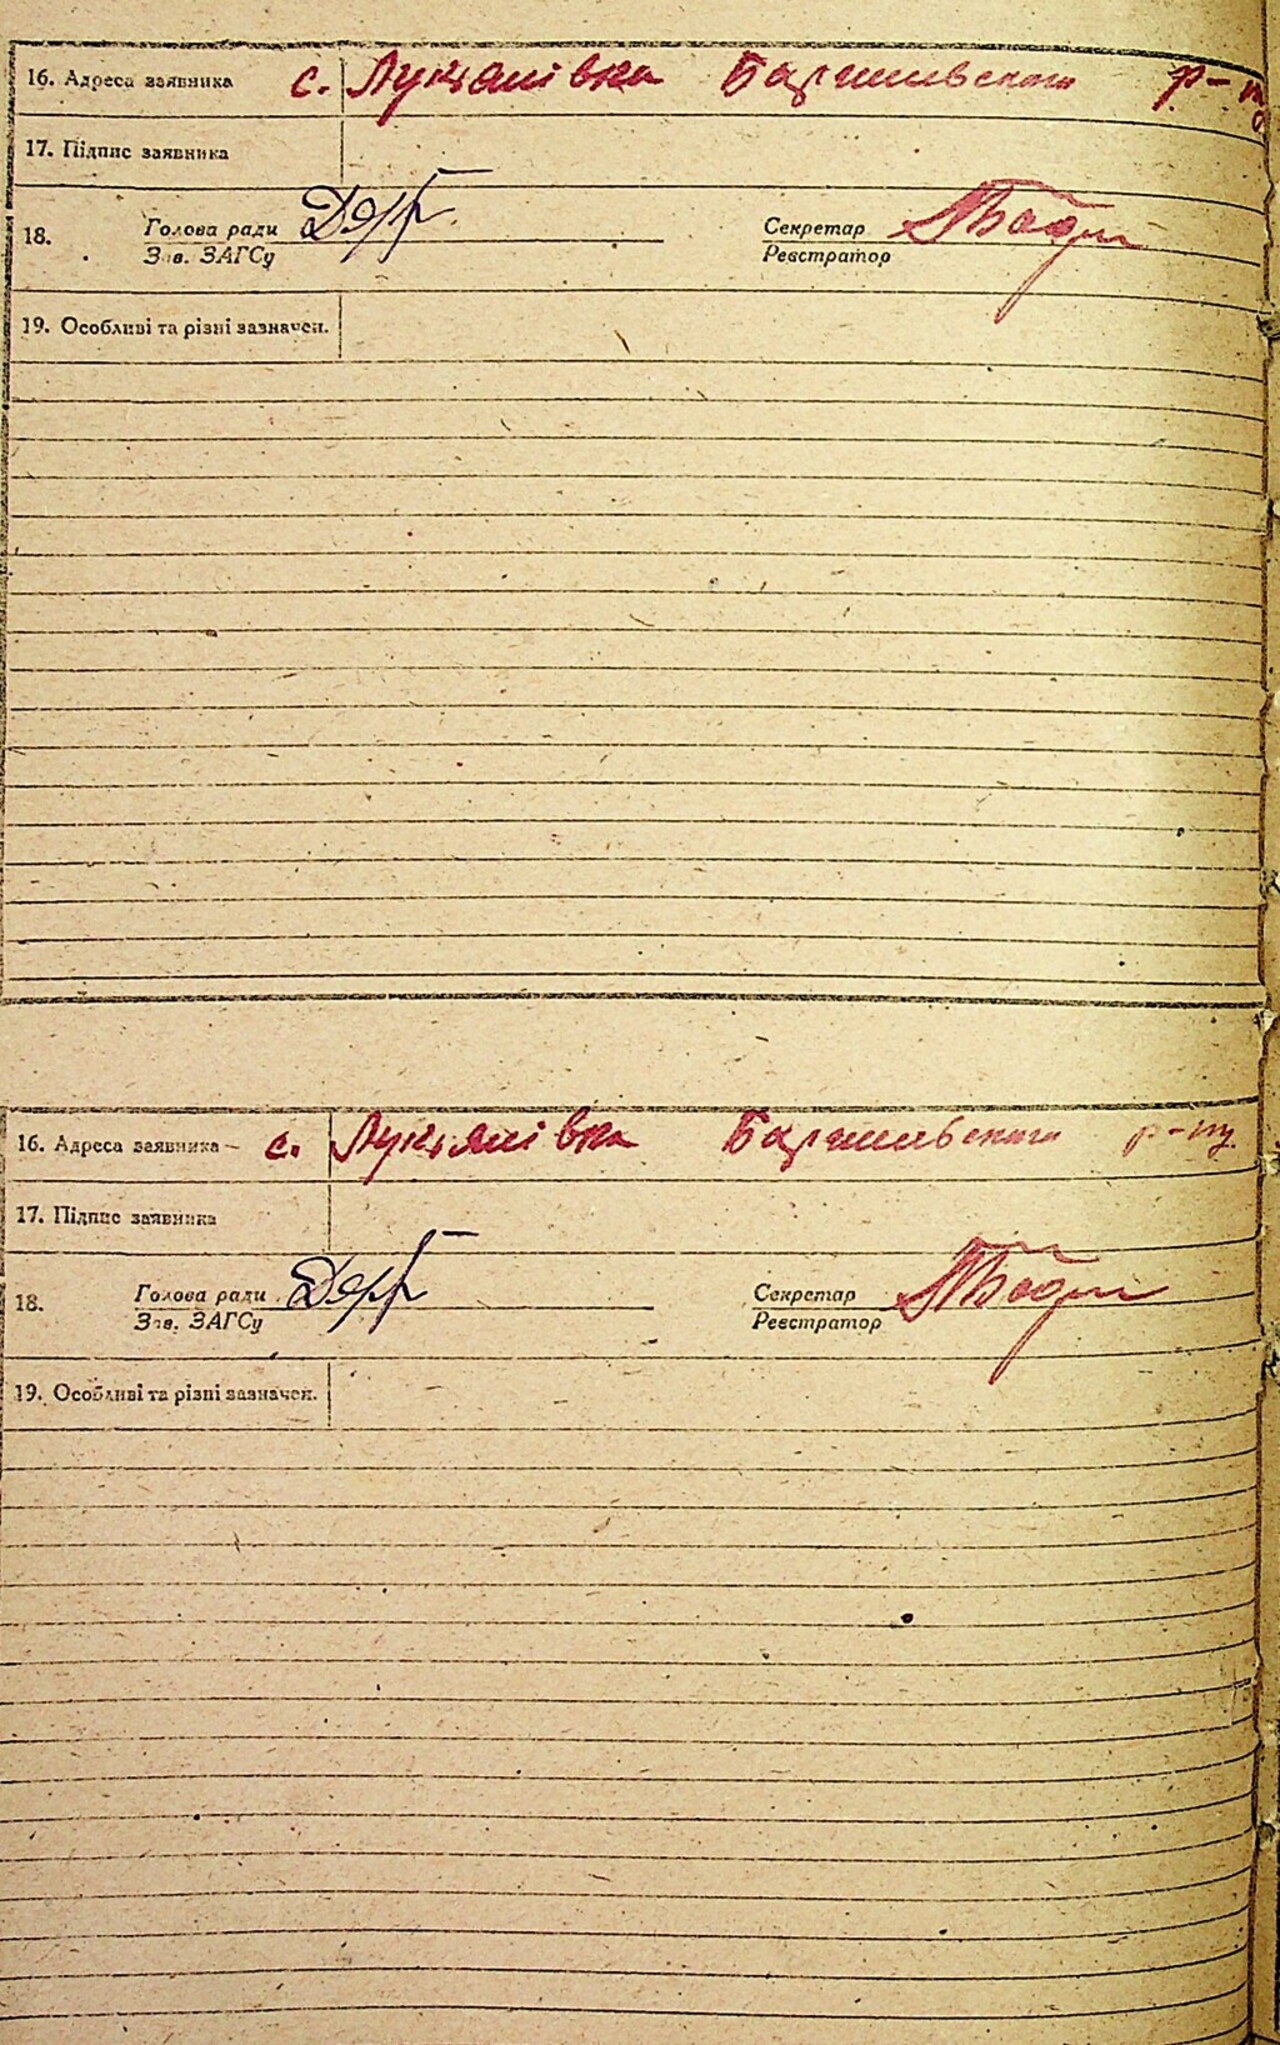 16. Адреса заявника с. Лукянівка Баришівського р-ну
17. Підпис заявника
18. Голова ради Секретар
Зав. ЗАГСу Реєстратор
19. Особливі та різні зазначен.
16. Адреса заявника – с. Лукянівка Баришівського р-ну
17. Підпис заявника
18. Голова ради Секретар
Зав. ЗАГСу Реєстратор
19. Особливі та різні зазначен.